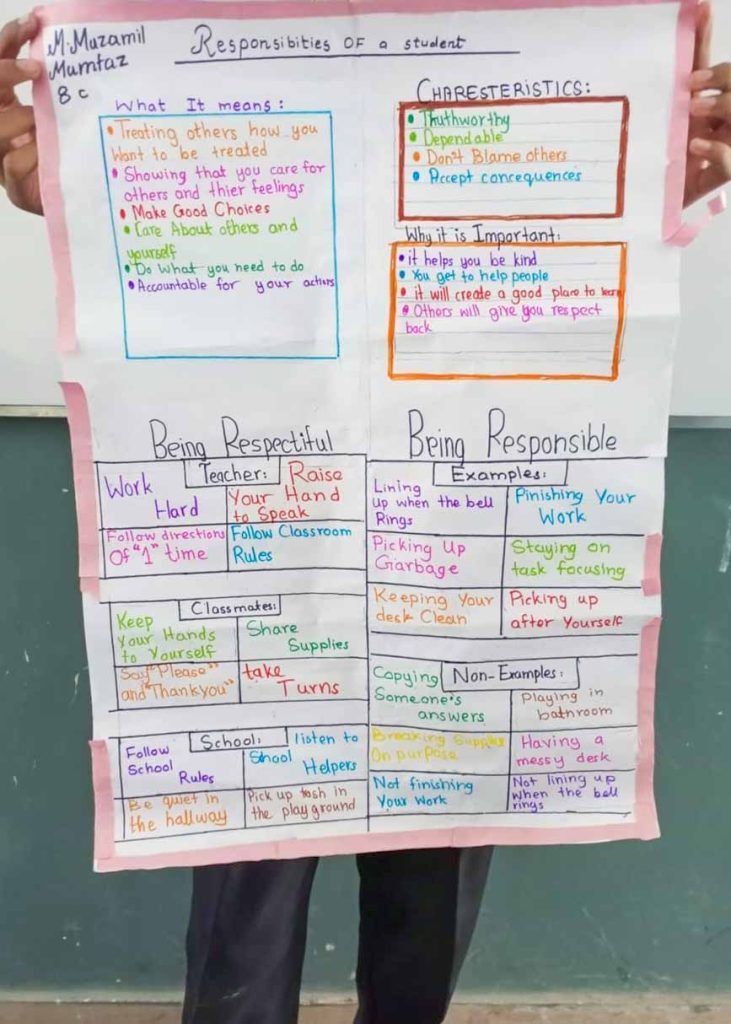 M.Muzamil
Mumtaz
8 c
Responsibities OF a student
What It means:
• Treating others how you
Want to be treated
• Showing that you care for
others and thier feelings
• Make Good Choices
• Care About others and
yourself
• Do What you need to do
• Accountable for your actions
CHARESTERISTICS:
• Thuthworthy
• Dependable
• Don't Blame others
• Accept concequences
Why it is Important:
• it helps you be kind
• You get to help people
• it will create a good place to learn
• Others will give you respect
back
Being Respectiful
Teacher:
Work
Hard
Raise
Your Hand
to Speak
Follow directions
Of "1" time
Follow Classroom
Rules
Classmates:
Keep
Your Hands
to Yourself
Share
Supplies
Say "Please"
and "Thankyou"
take
Turns
School:
Follow
School
Rules
listen to
Shool
Helpers
Be quiet in
the hallway
Pick up tash in
the play ground
Being Responsible
Examples:
Lining
Up when the bell
Rings
Pinishing Your
Work
Picking Up
Garbage
Staying on
task focusing
Keeping Your
desk Clean
Picking up
after Yourself
Non-Examples:
Copying
Someone's
answers
Playing in
bathroom
Breaking Supplies
On purpose
Having a
messy desk
Not finishing
Your Work
Not lining up
When the bell
rings